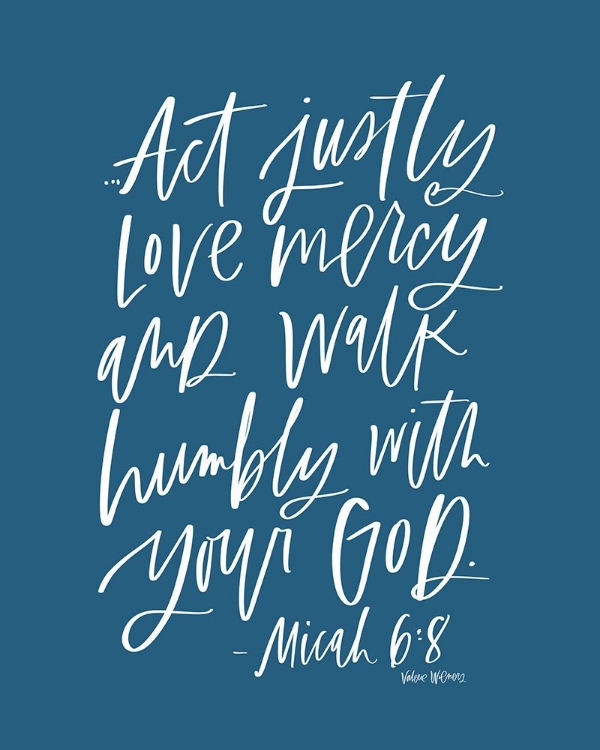 ...Act justly
Love mercy
and walk
humbly with
your God.
- Micah 6:8
Valerie Wieners